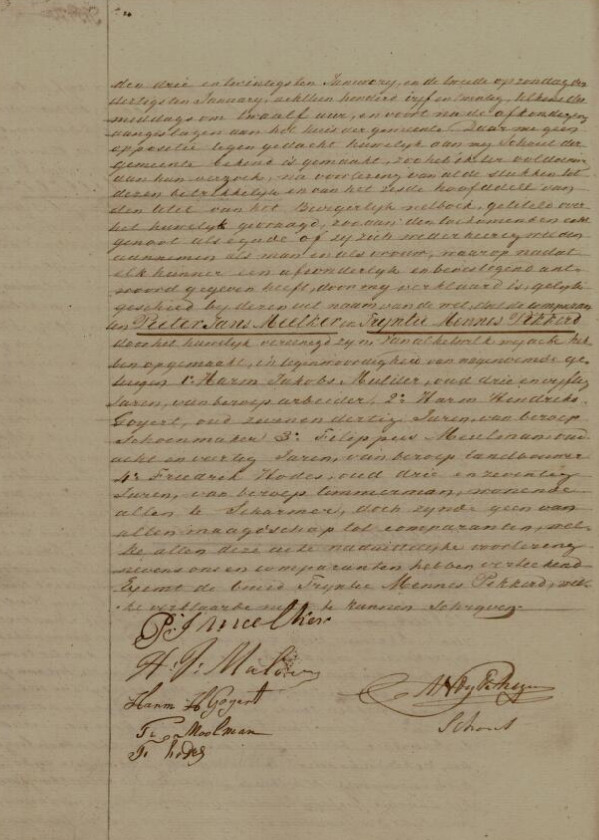 den drie en twintigsten January, en de tweede op zondag den
dertigsten January, achttien honderd vijf en twintig, telkens des
middags om twaalf uur, en voorts na de afkondiging
aangeslagen aan het huis der gemeente. Daar my geen
oppositie tegen gedacht huwelijk aan my Schout der
gemeente bekend is gemaakt, zoo heb ik ter voldoening
aan hun verzoek, na voorlezing van al de stukken tot
dezen betrekkelijk en van het zesde hoofddeel van
den titel van het Burgerlyk wetboek, getiteld over
het huwelijk gevraagd, zoo aan den toekomenden echt
genoot als bruid of zij zich wederkeerig wilden
aannemen als man en als vrouw, waarop nadat
elk hunner een afzonderlyk en bevestigend ant-
woord gegeven heeft, door my verklaard is, gelyk
geschied by dezen uit naam van de wet, dat de comparan
ten Pieter Jans Meelker en Tryntje Mennes Pekkerd
door het huwelijk vereenigd zyn. Van al hetwelk wy acte heb
ben opgemaakt, in tegenwoordigheid van nagenoemde ge-
tuigen 1e Harm Jakobs Mulder, oud drie en vyftig
Jaren, van beroep arbeider, 2e Harm Hendriks
Goyert, oud zeven en dertig Jaren, van beroep
Schoenmaker 3e Filippus Meulman, oud
acht en veertig Jaren, van beroep landbouwer
4e Fredrik Hodes, oud drie en zeventig
Jaren, van beroep timmerman, wonende
allen te Scharmer, doch zynde geen van
allen maagdschap tot comparanten, wel-
ke allen deze acte na duidelyke voorlezing
nevens ons en comparanten hebben verteekend
Exemt de bruid Tryntje Mennes Pekkerd, wel-
ke verklaarde niet te kunnen Schryven.
P: J Meelker
H: J: Mulder
Harm H Goyert
Fi Moolman
F: hodes
Schout